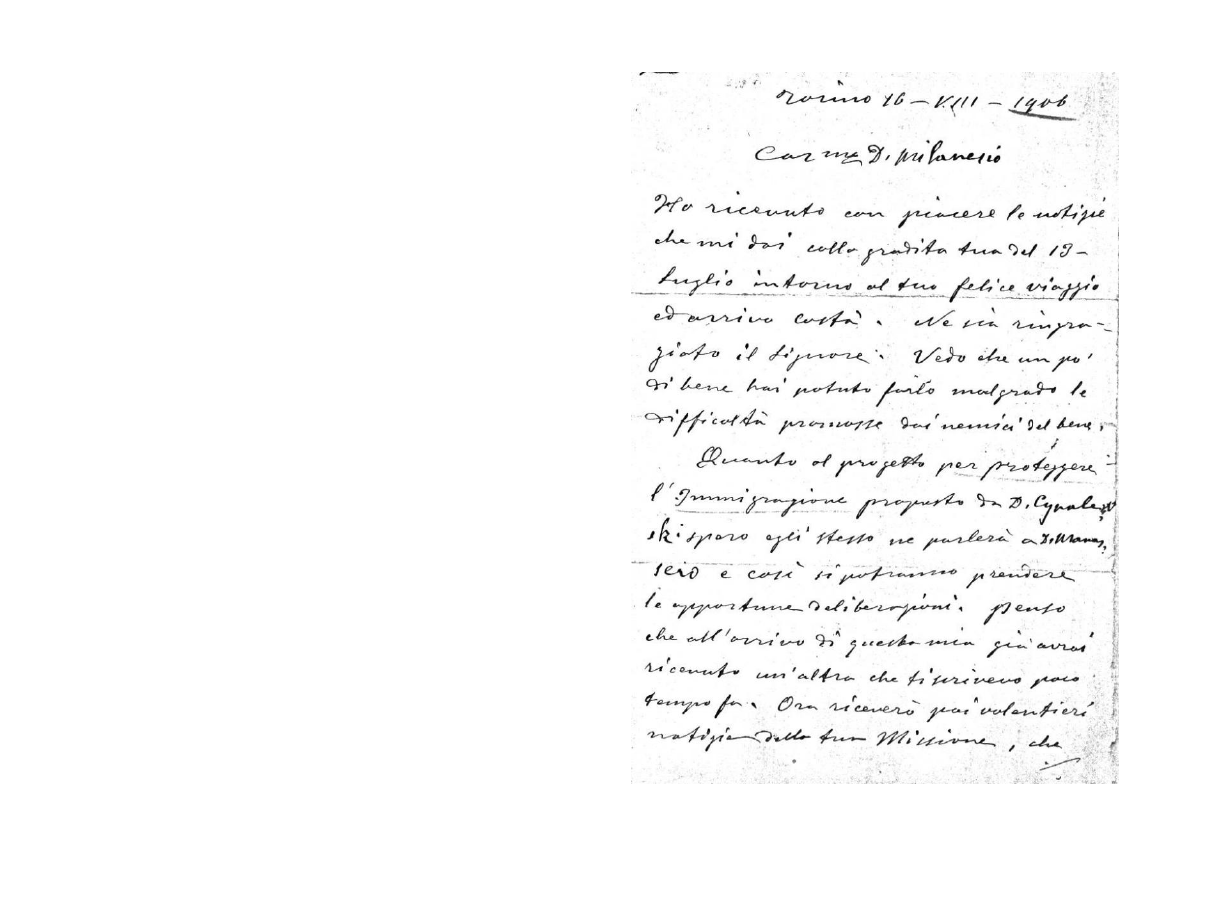 Torino 16 - VIII - 1906
Car.mo D. Milanesio
Ho ricevuto con piacere le notizie
che mi dai colla gradita tua del 13 -
Luglio intorno al tuo felice viaggio
ed arrivo costà. Ne sia ringra-
ziato il Signore. Vedo che un po'
di bene hai potuto farlo malgrado le
difficoltà promosse dai nemici del bene.
Quanto al progetto per proteggere
l'Immigrazione proposto da D. Cynalew
ski spero egli stesso ne parlerà a D. Manas.
sero e così si potranno prendere
le opportune deliberazioni. Penso
che all'arrivo di questa mia già avrai
ricevuto un'altra che ti scrivevo poco
tempo fa. Ora riceverò poi volentieri
notizie della tua Missione, che